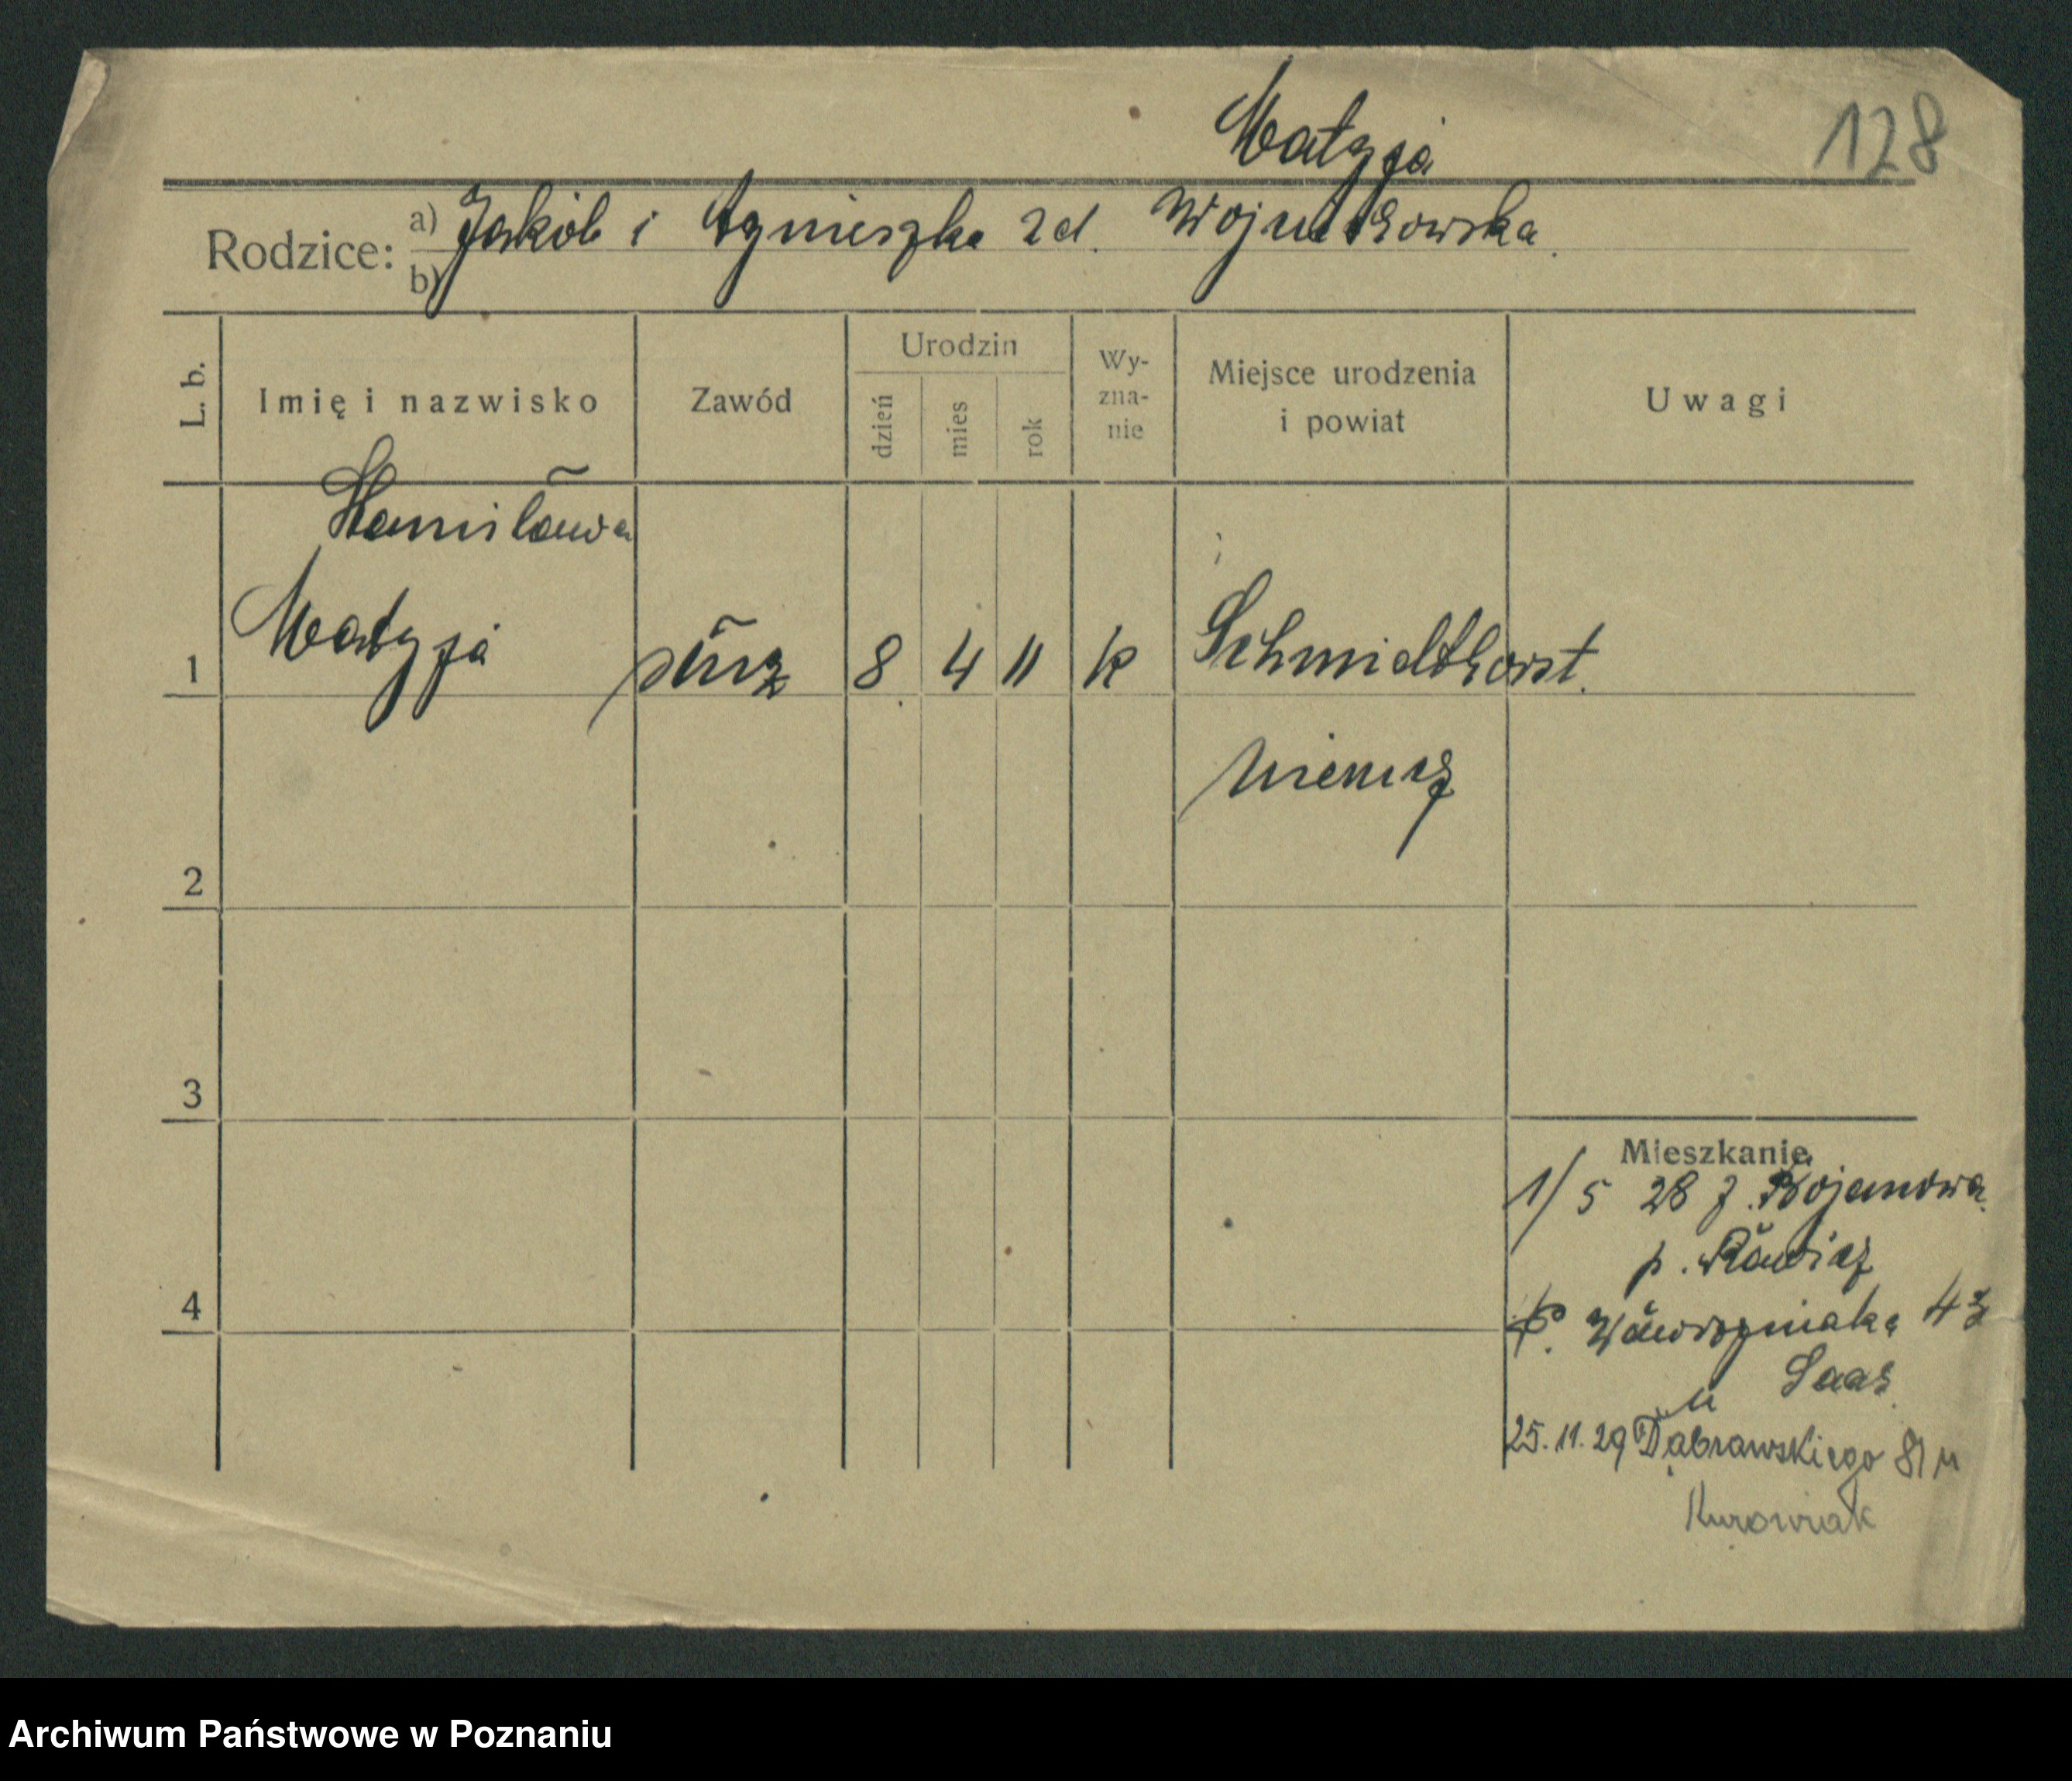 Matyja
128
Rodzice: a) Jakób i Agnieszka zd. Wojnakowska.
b)
L. b.
Imię i nazwisko
Zawód
Urodzin
dzień
mies
rok
Wy-
zna-
nie
Miejsce urodzenia
i powiat
Uwagi
Stanisława
1 Matyja służ 8 4 11 k Schmidthorst.
Niemcz
2
3
4
Mieszkanie
1/5 28 z. Bojanowa
p. Rawicz
p. Wawrzyniaka 43
u Saas
25.11.29 Dąbrowskiego 81 u
Kurowiak
Archiwum Państwowe w Poznaniu